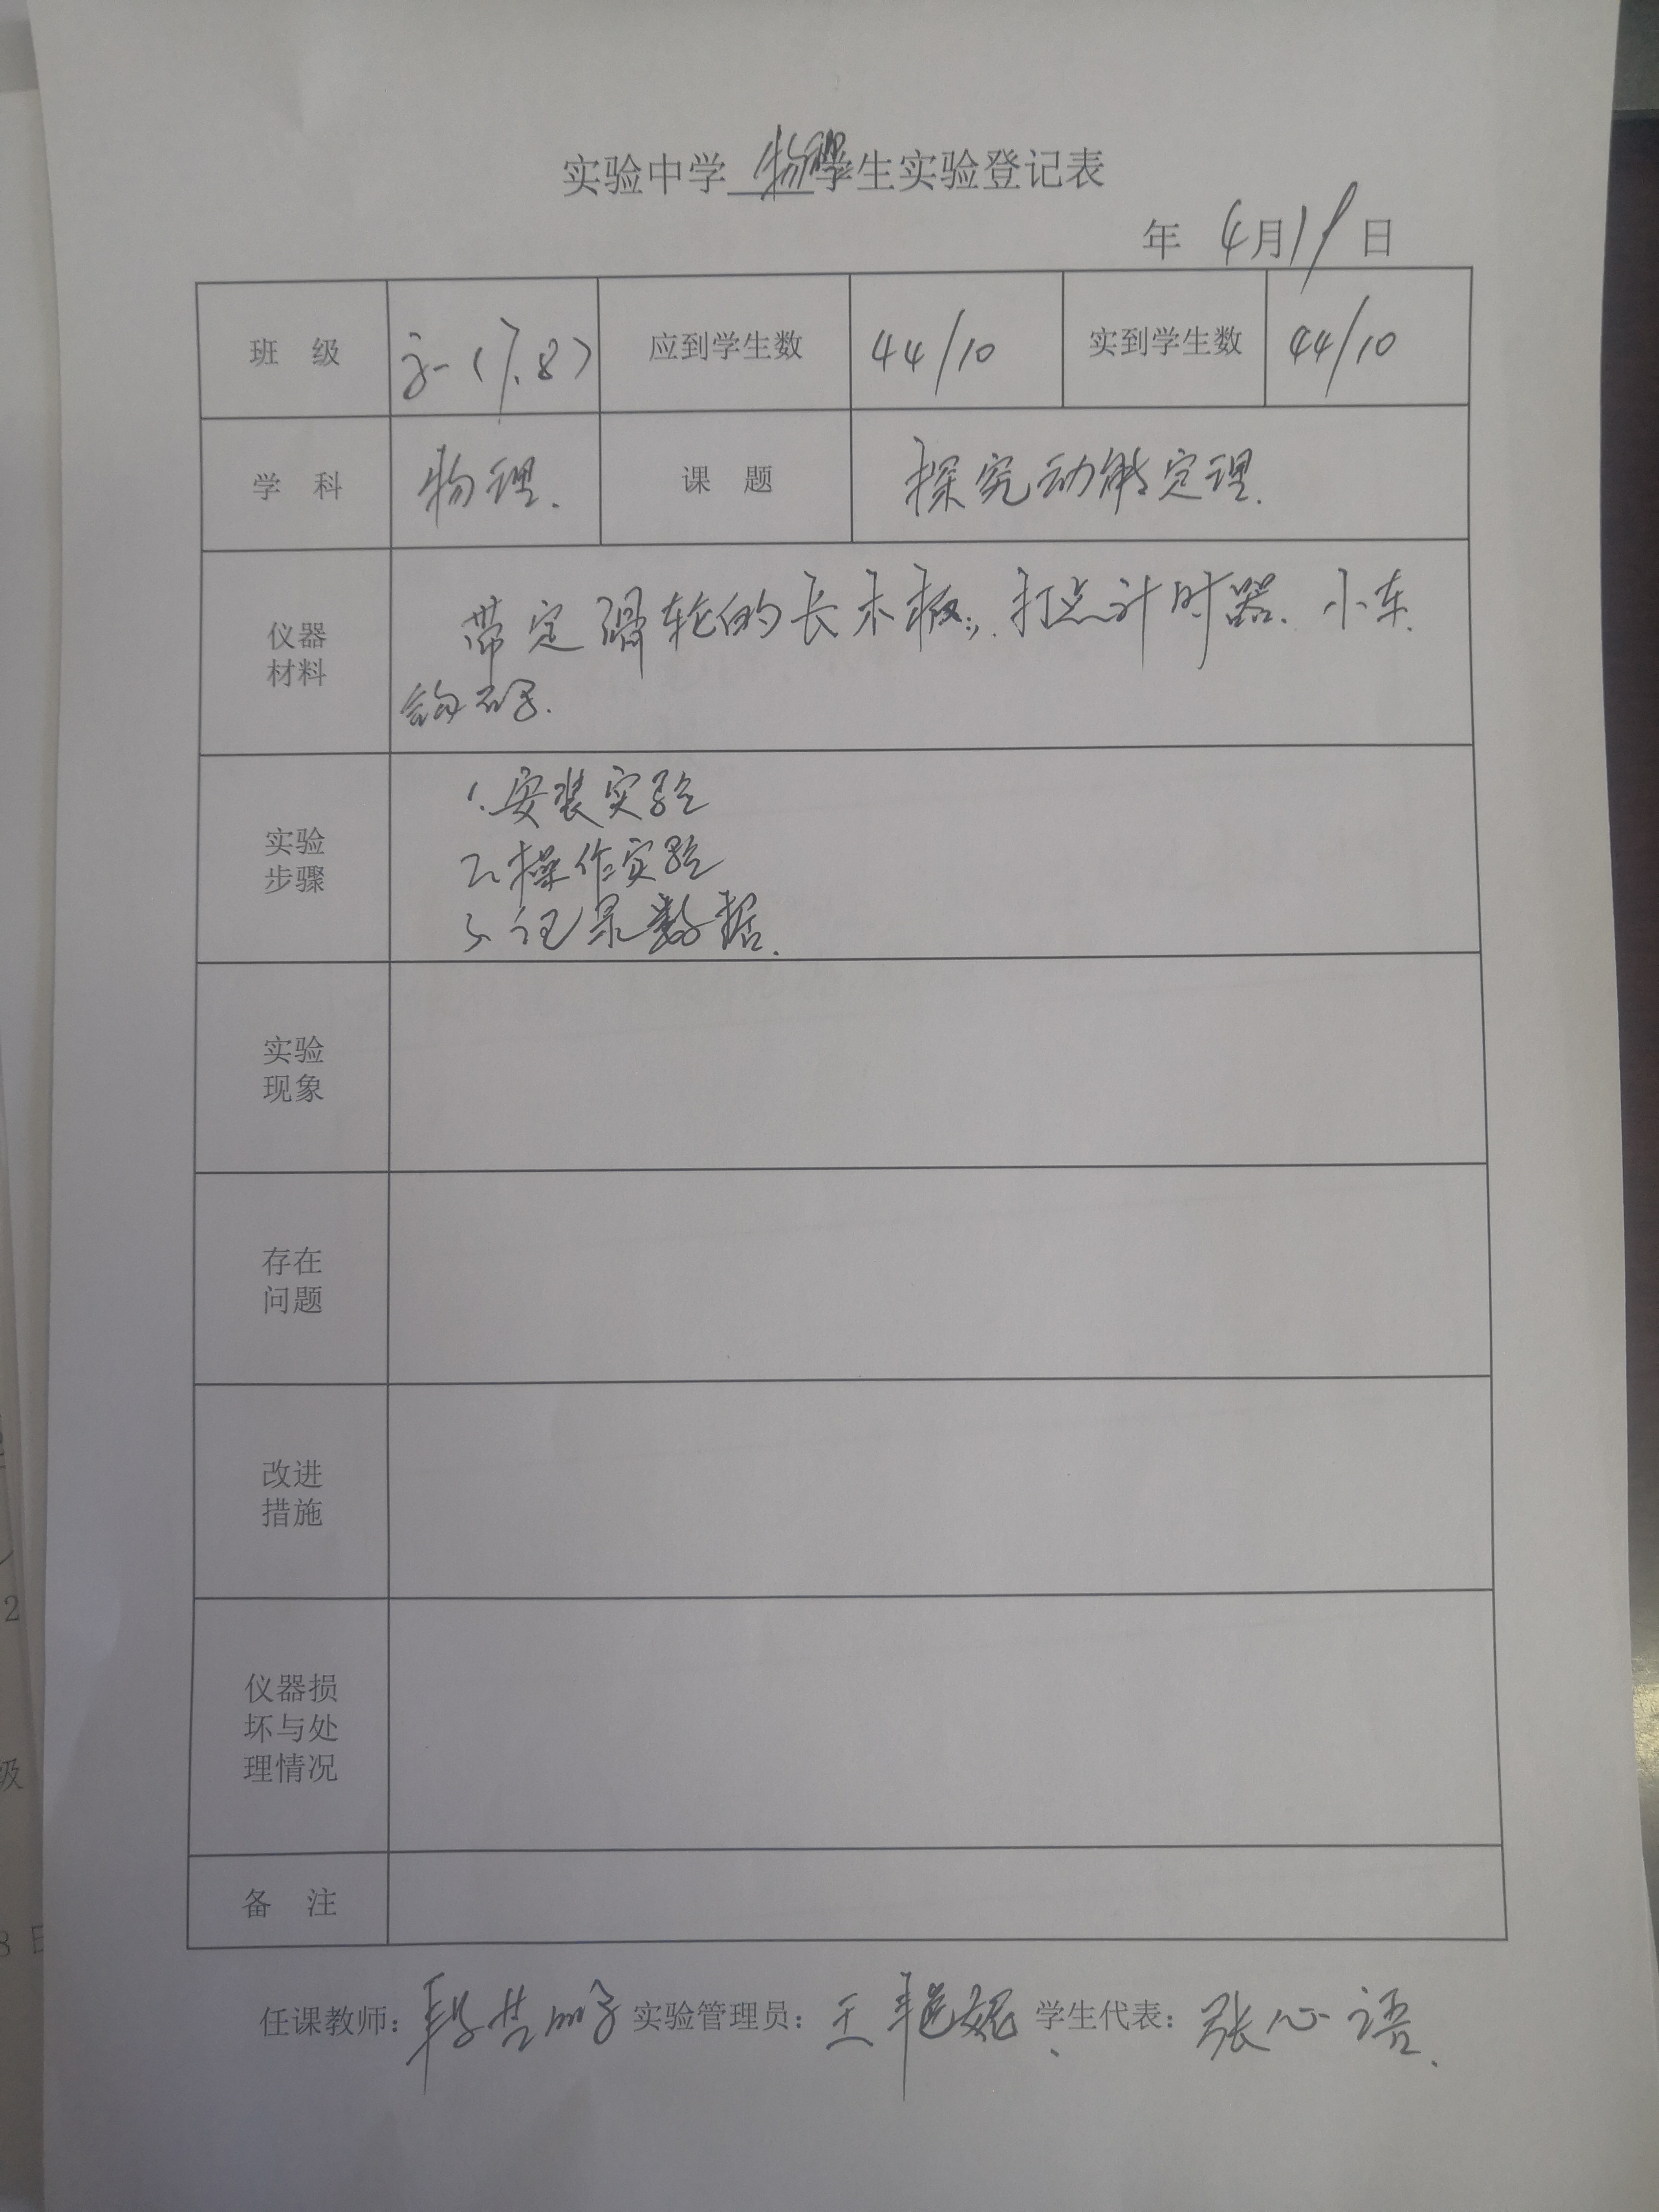 实验中学 物理 学生实验登记表
年 4月19日
班 级 高一(7.8) 应到学生数 44/10 实到学生数 44/10
学 科 物理. 课 题 探究动能定理.
仪器
材料
带定滑轮的长木板、打点计时器、小车、
钩码.
实验
步骤
1.安装实验
2.操作实验
3.记录数据.
实验
现象
存在
问题
改进
措施
仪器损
坏与处
理情况
备 注
任课教师: 实验管理员: 王 学生代表: 张心语.
2
级
8 日